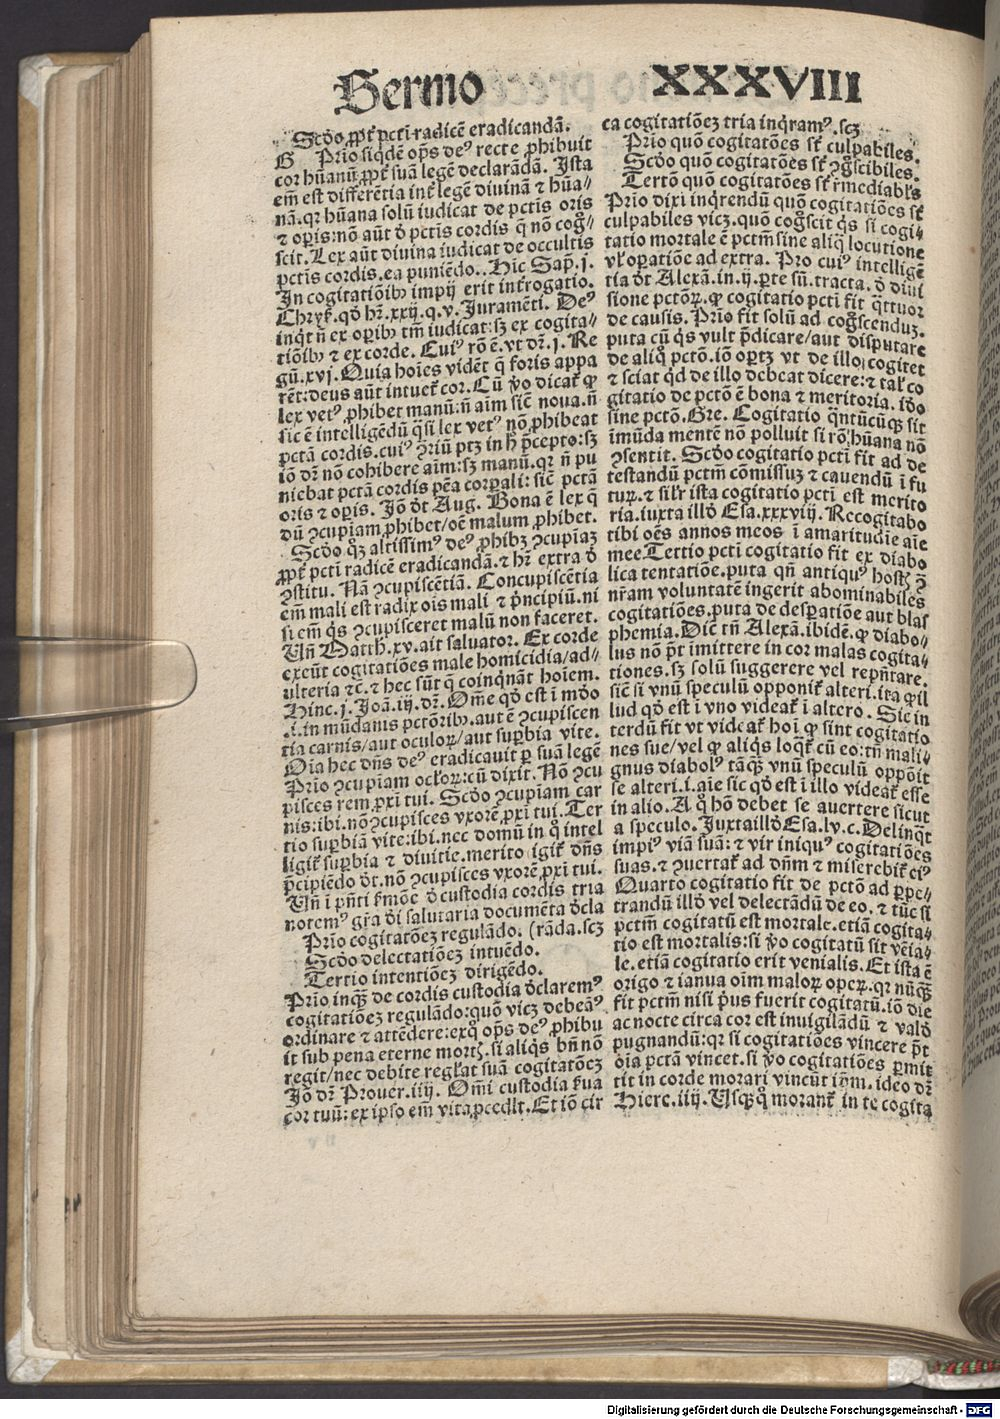 Sermo XXXVIII
Scd̓o ꝓpt̓ pcti radicē eradicandā.
G Prīo siq̇dē op̄s deꝰ recte ꝓhibuit
cor hūanū ꝓpt̓ suā legē declarādā. Ista
em̄ est differētia int̓ legē diuinā ⁊ hūa⸗
nā.qꝛ hūana solū iudicat de pctīs oris
⁊ oꝑis:nō aūt d̓ pctīs cordis q̄ nō cog̊⸗
scit. Lex aūt diuina iudicat de occultis
pctīs cordis.ea puniēdo..Hīc Sap̄.j.
In cogitatiōibꝫ impij erit int̓rogatio.
Chryẜ.qd̓ hr̄.xxij.q.v.Iuramēti. Deꝰ
inq̇t n̄ ex oꝑibꝫ tm̄ iudicat:sꝫ ex cogita⸗
tiōibꝫ ⁊ ex corde. Cuiꝰ rō ē.vt dr̄.j.Re
gū.xvj.Quia hoīes vidēt q̄ foris appa
rēt:deus aūt intuet̉ cor.Cū v̓o dicat̉ ꝙ
lex vetꝰ ꝓhibet manū:n̄ aīm sic̄ noua.n̄
sic ē intelligēdū q̄si lex vetꝰ nō ꝓhibeat
pctā cordis.cuiꝰ ꝯriū ptꝫ in h̓ p̄cepto:sꝫ
iō dr̄ nō cohibere aīm:sꝫ manū.qꝛ n̄ pu
niebat pctā cordis pēa corꝑali: sic̄ pctā
oris ⁊ oꝑis. Iō d̓t Aug. Bona ē lex q̄
dū ꝯcupīam ꝓhibet/oē malum ꝓhibet.
Scd̓o q̇ꝫ altissimꝰ deꝰ ꝓhibꝫ ꝯcupīaꝫ
ꝓpt̓ pcti radicē eradicandā.⁊ hr̄ extra d̓
ꝯstitu. Nā ꝯcupiscētiā. Concupiscētia
em̄ mali est radix oīs mali ⁊ p̓ncipiū.ni
si em̄ q̇s ꝯcupisceret malū non faceret.
Vn̄ Matth̓.xv.ait saluator. Ex corde
exeūt cogitatiōes male homicidia/ad⸗
ulteria ⁊c̄.⁊ hec sūt q̄ coinq̇nāt hoīem.
Hinc.j.Ioā.iij.dr̄.Om̄e qd̓ est ī mūdo
.i.in mūdanis pctōribꝫ.aut ē ꝯcupiscen
tia carnis/aut oculoꝝ/aut suꝑbia vite.
Oīa hec dn̄s deꝰ eradicauit ꝑ suā legē
Prīo ꝯcupīam ocl̓oꝝ:cū dixit. Nō ꝯcu
pisces rem ꝓxī tui. Scd̓o ꝯcupīam car
nis:ibi.nō ꝯcupisces vxorē ꝓxī tui. Ter
tio suꝑbiā vite:ibi.nec domū in q̊ intel
ligit̉ suꝑbia ⁊ diuitie.merito igit̉ dn̄s
p̄cipiēdo d̓t.nō ꝯcupisces vxorē ꝓxī tui.
Vn̄ ī pn̄ti ẜmōe d̓ custodia cordis tria
notemꝰ gr̄a d̓i salutaria documēta d̓cla
Prīo cogitatōeꝫ regulādo. (rāda.scꝫ
Scd̓o delectatiōeꝫ intuēdo.
Tertio intentiōeꝫ dirigēdo.
Prīo inq̄ꝫ de cordis custodia d̓claremꝰ
cogitatiōeꝫ regulādo:quō vicꝫ debeāꝰ
ordinare ⁊ attēdere:exq̊ op̄s deꝰ ꝓhibu
it sub pena eterne mort̉.si aliq̇s bn̄ nō
regit/nec debite regl̓at suā cogitatōeꝫ
Iō dr̄ Prouer.iiij. Om̄i custodia ẜua
cor tuū: ex ipso em̄ vita ꝓcedit.Et iō cir
ca cogitatiōeꝫ tria inq̇ramꝰ.scꝫ
Prīo quō cogitatōes st̄ culpabiles.
Scd̓o quō cogitatōes st̄ ꝯg̊scibiles.
Tertō quō cogitatōes st̄ r̄mediabl̓s
Prīo dixi inq̇rendū quō cogitatiōes st̄
culpabiles vicꝫ.quō cog̊scit q̇s si cogi⸗
tatio mortale ē pctm̄ sine aliq̄ locutione
vl̓ oꝑatiōe ad extra. Pro cuiꝰ intelligē
tia d̓t Alexā.in.ij.ꝑte sū.tracta.d̓ diui
sione pctōꝝ.ꝙ cogitatio pcti fit q̄ttuor
de causis. Prīo fit solū ad cog̊scenduꝫ.
puta cū q̇s vult p̄dicare/aut disputare
de aliq̊ pctō.iō oꝑtꝫ vt de illo cogitet
⁊ sciat q̇d de illo debeat dicere:⁊ tal̓ co
gitatio de pctō ē bona ⁊ meritoria.id̓o
sine pctō.Gre. Cogitatio q̄ntūcūq̨ sit
īmūda mentē nō polluit si rō hūana nō
ꝯsentit. Scd̓o cogitatio pcti fit ad de
testandū pctm̄ cōmissuꝫ ⁊ cauendū ī fu
tuꝝ.⁊ sil̓r ista cogitatio pcti est merito
ria.iuxta illd̓ Esa.xxxviij. Recogitabo
tibi oēs annos meos ī amaritudīe aīe
mee.Tertio pcti cogitatio fit ex diabo
lica tentatiōe.puta qn̄ antiquꝰ host̉ ꝯ̄
nr̄am voluntatē ingerit abominabiles
cogitatiōes.puta de desꝑatiōe aut blas
phemia.Dic̄ tn̄ Alexā.ibidē.ꝙ diabo⸗
lus nō p̄t immittere in cor malas cogita⸗
tiones.sꝫ solū suggerere vel rep̄ntare.
sic̄ si vnū speculū opponit̉ alteri.ita ꝙ il
lud qd̓ est ī vno videat̉ ī altero. Sic in
terdū fit vt videat̉ hoī ꝙ sint cogitatio
nes sue/vel ꝙ aliq̇s loq̇t̉ cū eo:tn̄ mali⸗
gnus diabolꝰ tāq̄ꝫ vnū speculū oppōit
se alteri.i.aīe sic qd̓ est ī illo videat̉ esse
in alio.A q̊ hō debet se auertere sicut
a speculo. Iuxta illd̓ Esa.lv.c.Delinq̄t
impiꝰ viā suā:⁊ vir iniquꝰ cogitatiōes
suas.⁊ ꝯuertat̉ ad dn̄m ⁊ miserebit̉ eiꝰ
Quarto cogitatio fit de pctō ad ꝑpe⸗
trandū illd̓ vel delectādū de eo.⁊ tūc si
pctm̄ cogitatū est mortale.etiā cogita⸗
tio est mortalis:si v̓o cogitatū sit vēia⸗
le.etiā cogitatio erit venialis.Et ista ē
origo ⁊ ianua oīm maloꝝ opeꝝ.qꝛ nūq̄ꝫ
fit pctm̄ nisi p̓us fuerit cogitatū.iō die
ac nocte circa cor est inuigilādū ⁊ vald̓
pugnandū:qꝛ si cogitatiōes vincere p̄t
oīa pctā vincet.si v̓o cogitatiōes ꝑmit
tit in corde morari vincūt ip̄m.ideo dr̄
Hiere.iiij.Vsq̨q̊ morant̉ in te cogita
Digitalisierung gefördert durch die Deutsche Forschungsgemeinschaft - DFG